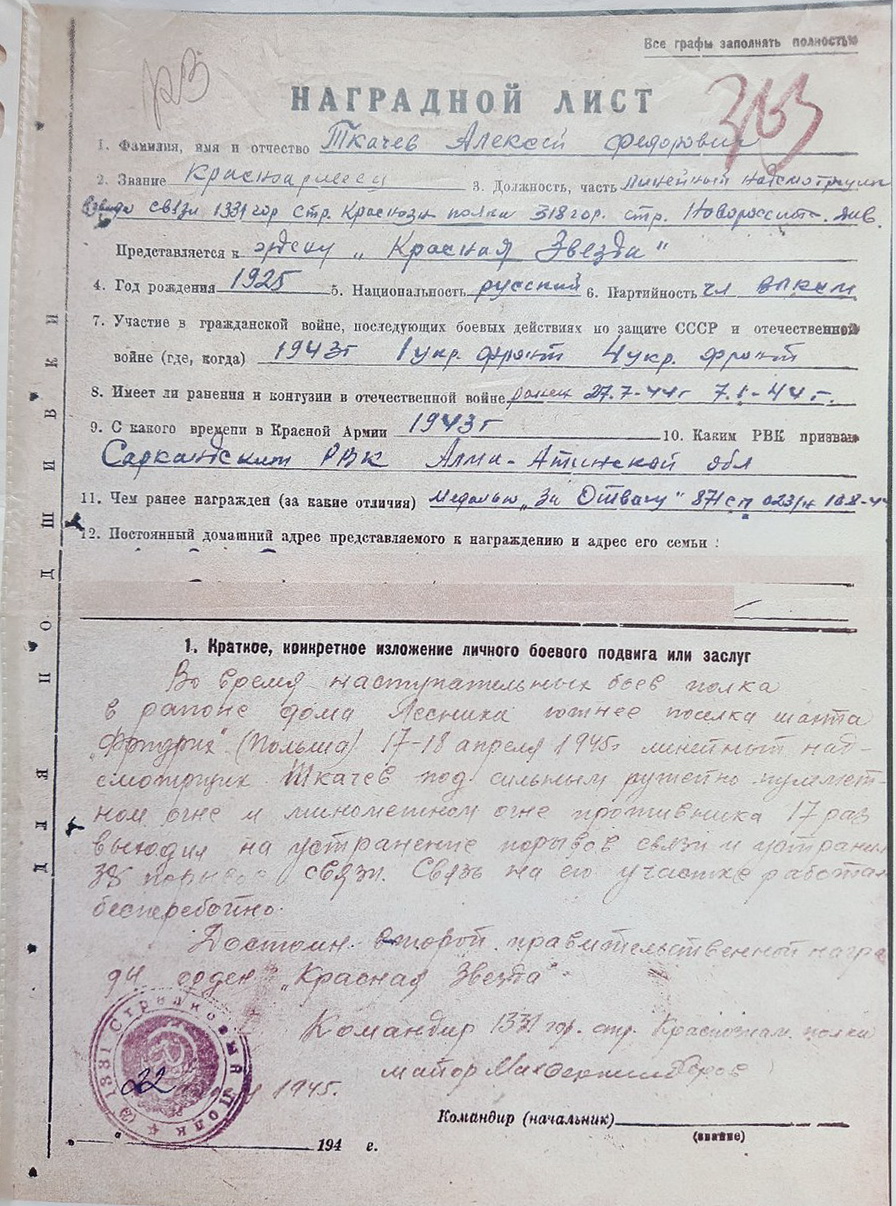 Все графы заполнять полностью
НАГРАДНОЙ ЛИСТ
1. Фамилия, имя и отчество Ткачев Алексей Федорович
2. Звание Красноармеец 3. Должность, часть Линейный надсмотрщик
взвода связи 1331 гор. стр. Краснозн полка 318 гор. стр. Новороссийск. див.
Представляется к ордену „Красная Звезда"
4. Год рождения 1925 5. Национальность русский 6. Партийность чл влксм
7. Участие в гражданской войне, последующих боевых действиях по защите СССР и отечественной
войне (где, когда) 1943г 1 укр. фронт 4 укр. фронт
8. Имеет ли ранения и контузии в отечественной войне ранен 27.7-44г 7.1-44г.
9. С какого времени в Красной Армии 1943г 10. Каким РВК призван
Саркандским РВК Алма-Атинской обл
11. Чем ранее награжден (за какие отличия) Медалью „За Отвагу" 871 сп 023/н
12. Постоянный домашний адрес представляемого к награждению и адрес его семьи:
ДЛЯ ПОДШИВКИ
1. Краткое, конкретное изложение личного боевого подвига или заслуг
Во время наступательных боев полка
в районе дома Лесника южнее поселка шахта
(Польша) 17-18 апреля 1945г линейный над-
смотрщик Ткачев под сильным ружейно пулемет-
ном огне и минометном огне противника 17 раз
выходил на устранение порывов связи и устранил
связи. Связь на его участке работала
бесперебойно.
Достоин второй правительственной награ
ды орден „Красная Звезда".
Командир 1331 гор. стр. Краснознам. полка
майор
1331 Стрелковый Полк
22 1945.
Командир (начальник)
(звание)
194 г.